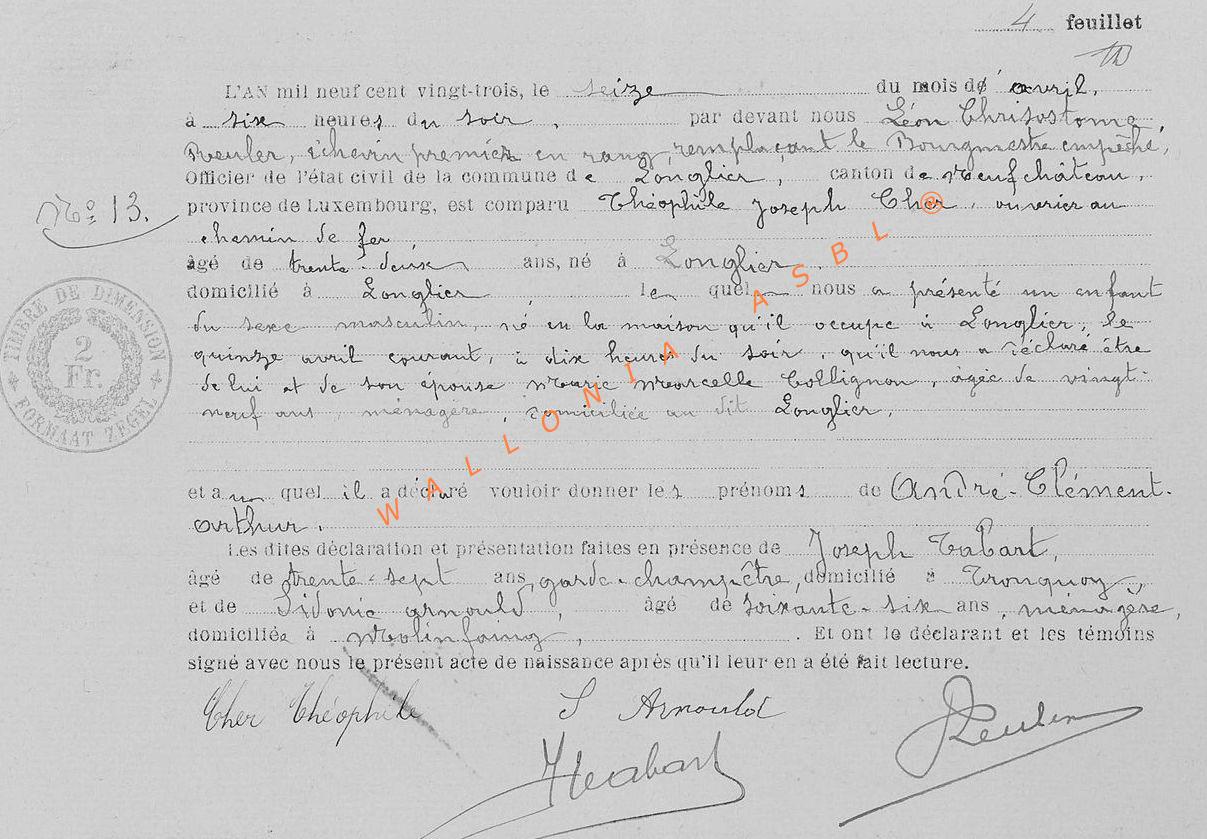 4 feuillet
L'AN mil neuf cent vingt-trois, le seize du mois de avril,
à six heures du soir, par devant nous Léon Chrisostome
Reuler, échevin premier en rang, remplaçant le Bourgmestre empêché,
Officier de l'état civil de la commune de Longlier, canton de Neufchâteau,
N° 13.
province de Luxembourg, est comparu Théophile Joseph Cher, ouvrier au
chemin de fer,
âgé de trente-deux ans, né à Longlier
domicilié à Longlier, lequel nous a présenté un enfant
du sexe masculin, né en la maison qu'il occupe à Longlier, le
quinze avril courant, à dix heures du soir, qu'il nous a déclaré être
de lui et de son épouse Marie Marcelle Collignon, âgée de vingt-
neuf ans, ménagère, domiciliée au dit Longlier.
et auquel il a déclaré vouloir donner les prénoms de André-Clément-
Arthur.
Les dites déclaration et présentation faites en présence de Joseph Tabart,
âgé de trente-sept ans, garde-champêtre, domicilié à Tronquoy,
et de Sidonie Arnould, âgé de soixante-six ans, ménagère,
domiciliée à Molinfaing, . Et ont le déclarant et les témoins
signé avec nous le présent acte de naissance après qu'il leur en a été fait lecture.
Cher Théophile S Arnould
TIMBRE DE DIMENSION
2
Fr.
FORMAAT ZEGEL
WALLONIA ASBL ®